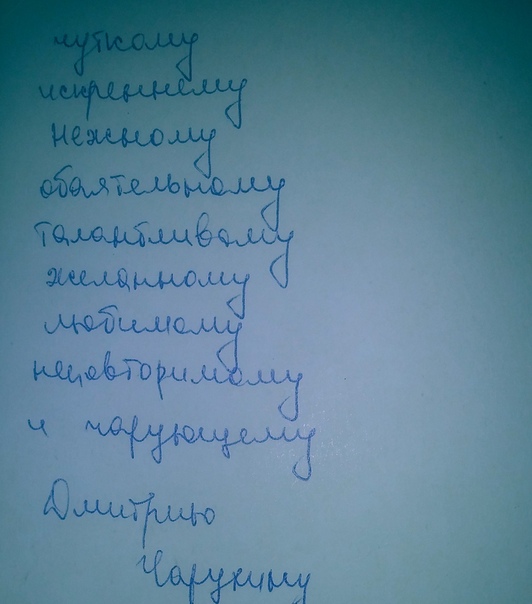 чуткому
искреннему
нежному
обаятельному
талантливому
желанному
любимому
неповторимому
и чарующему
Дмитрию
Чарукину